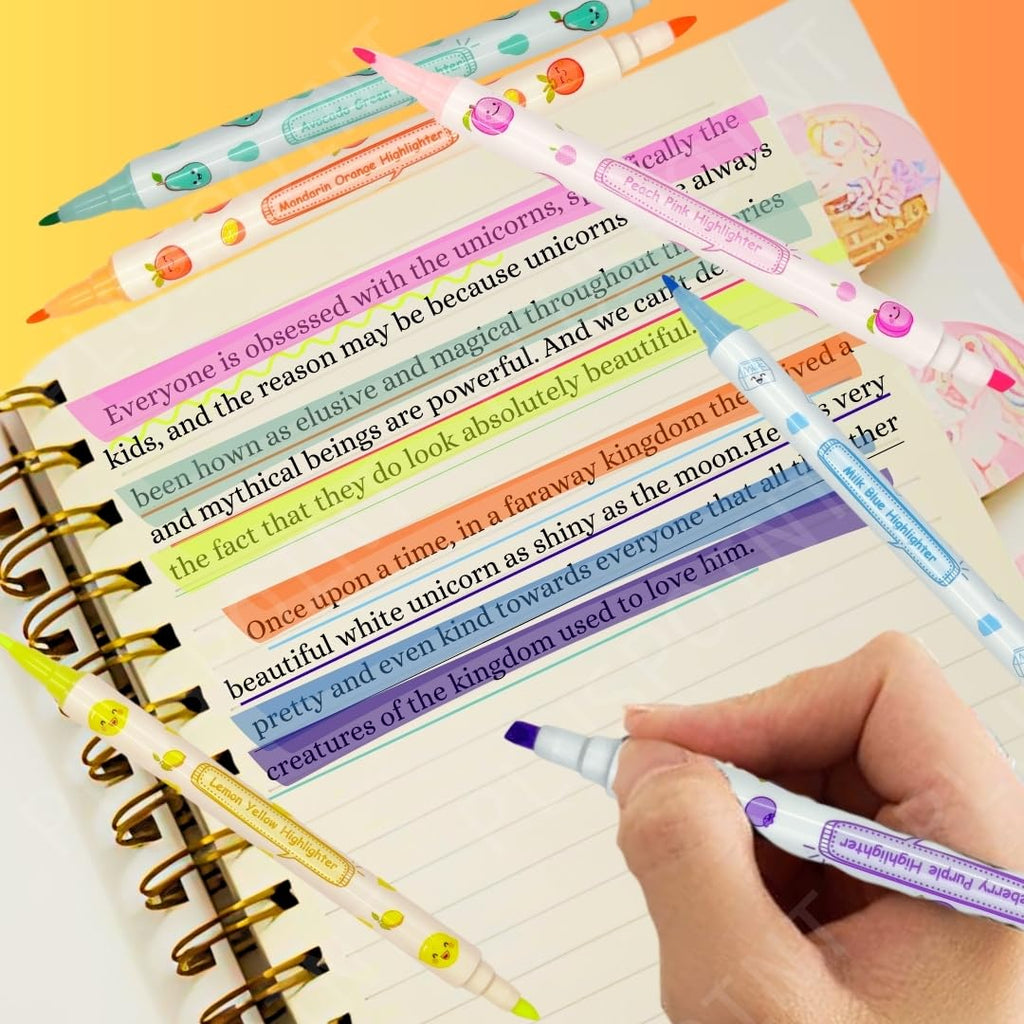 Avocado Green Highlighter
Mandarin Orange Highlighter
Peach Pink Highlighter
Everyone is obsessed with the unicorns, ically the
kids, and the reason may be because unicorns always
been hown as elusive and magical throughout
and mythical beings are powerful. And we can't
the fact that they do look absolutely beautiful.
Once upon a time, in a faraway kingdom a
beautiful white unicorn as shiny as the moon.He very
pretty and even kind towards everyone that all
creatures of the kingdom used to love him.
Milk Blue Highlighter
Lemon Yellow Highlighter
Purple Highlighter